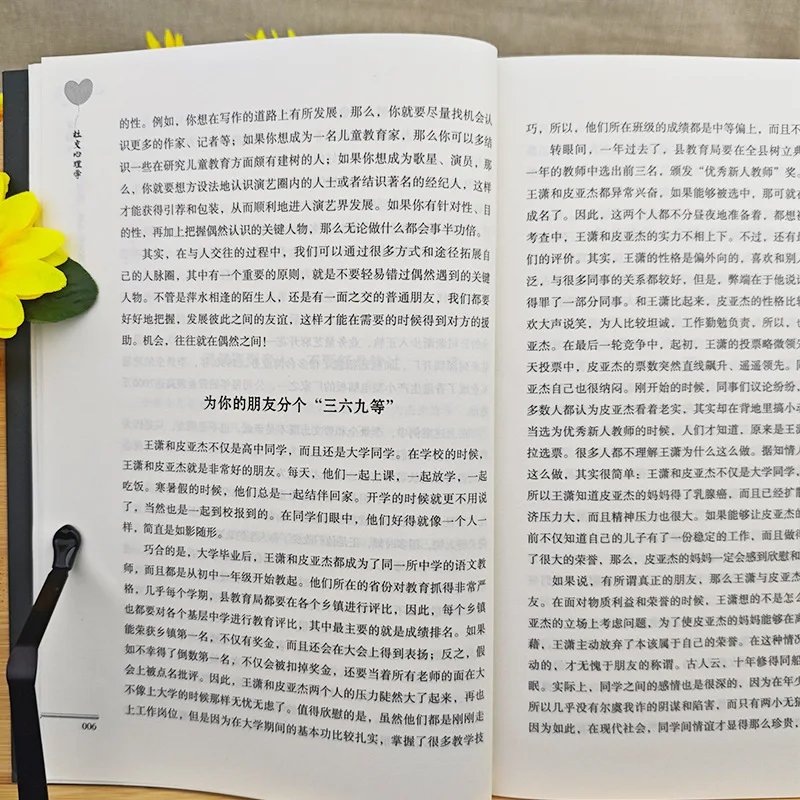 社交心理学
的性。例如，你想在写作的道路上有所发展，那么，你就要尽量找机会认
识更多的作家、记者等；如果你想成为一名儿童教育家，那么你可以多结
识一些在研究儿童教育方面颇有建树的人；如果你想成为歌星、演员，那
么、你就要想方设法地认识演艺圈内的人士或者结识著名的经纪人，这样
才能获得引荐和包装，从而顺利地进入演艺界发展。如果你有针对性、目
的性，再加上把握偶然认识的关键人物，那么无论做什么都会事半功倍。
其实，在与人交往的过程中，我们可以通过很多方式和途径拓展自
己的人脉圈，其中有一个重要的原则，就是不要轻易错过偶然遇到的关键
人物。不管是萍水相逢的陌生人，还是有一面之交的普通朋友，我们都要
好好地把握，发展彼此之间的友谊，这样才能在需要的时候得到对方的援
助。机会，往往就在偶然之间！
为你的朋友分个“三六九等”
王潇和皮亚杰不仅是高中同学，而且还是大学同学。在学校的时候，
王潇和皮亚杰就是非常好的朋友。每天，他们一起上课，一起放学，一起
吃饭。寒暑假的时候，他们总是一起结伴回家。开学的时候就更不用说
了，当然也是一起到校报到的。在同学们眼中，他们好得就像一个人一
样，简直是如影随形。
巧合的是，大学毕业后，王潇和皮亚杰都成为了同一所中学的语文教
师，而且都是从初中一年级开始教起。他们所在的省份对教育抓得非常严
格，几乎每个学期，县教育局都要在各个乡镇进行评比，因此，每个乡镇
也都要对各个基层中学进行教育评比，其中最主要的就是成绩排名。如果
能荣获乡镇第一名，不仅有奖金，而且还会在大会上得到表扬；反之，假
如不幸得了倒数第一名，不仅会被扣掉奖金，还要当着所有老师的面在大
会上被点名批评。因此，王潇和皮亚杰两个人的压力陡然大了起来，再也
不像上大学的时候那样无忧无虑了。值得欣慰的是，虽然他们都是刚刚走
上工作岗位，但是因为在大学期间的基本功比较扎实，掌握了很多教学技
006
巧，所以，他们所在班级的成绩都是中等偏上，而且不
转眼间，一年过去了，县教育局要在全县树立典
一年的教师中选出前三名，颁发“优秀新人教师”奖。
王潇和皮亚杰都异常兴奋，如果能够被选中，那可就在
成名了。因此，这两个人都不分昼夜地准备着，都想被
考查中，王潇和皮亚杰的实力不相上下。不过，还有最
们的评价。其实，王潇的性格是偏外向的，喜欢和别人
泛，与很多同事的关系都较好，但是，弊端在于他说话
得罪了一部分同事。和王潇比起来，皮亚杰的性格比较
欢大声说笑，为人比较坦诚，工作勤勉负责，所以，也
亚杰。在最后一轮竞争中，起初，王潇的投票略微领先
天投票中，皮亚杰的票数突然直线飙升、遥遥领先。同
亚杰自己也很纳闷。刚开始的时候，同事们议论纷纷，
多数人都认为皮亚杰看着老实，其实却在背地里搞小动
当选为优秀新人教师的时候，人们才知道，原来是王潇
拉选票。很多人都不理解王潇为什么这么做。据知情人
这么做，其实很简单：王潇和皮亚杰不仅是大学同学，
所以王潇知道皮亚杰的妈妈得了乳腺癌，而且已经扩散
济压力大，而且精神压力也很大。如果能够让皮亚杰的
前不仅知道自己的儿子有了一份稳定的工作，而且做得
了很大的荣誉，那么，皮亚杰的妈妈一定会感到欣慰和
如果说，有所谓真正的朋友，那么王潇与皮亚杰
友。在面对物质利益和荣誉的时候，王潇想的不是怎么
亚杰的立场上考虑问题，为了使皮亚杰的妈妈能够在离
藉，王潇主动放弃了本该属于自己的荣誉。在这种情况
动的，才无愧于朋友的称谓。古人云，十年修得同船
眠。实际上，同学之间的感情也是很深的，因为在年少
所以几乎没有尔虞我诈的阴谋和陷害，而只有两小无猜
因为如此，在现代社会，同学间情谊才显得那么珍贵，